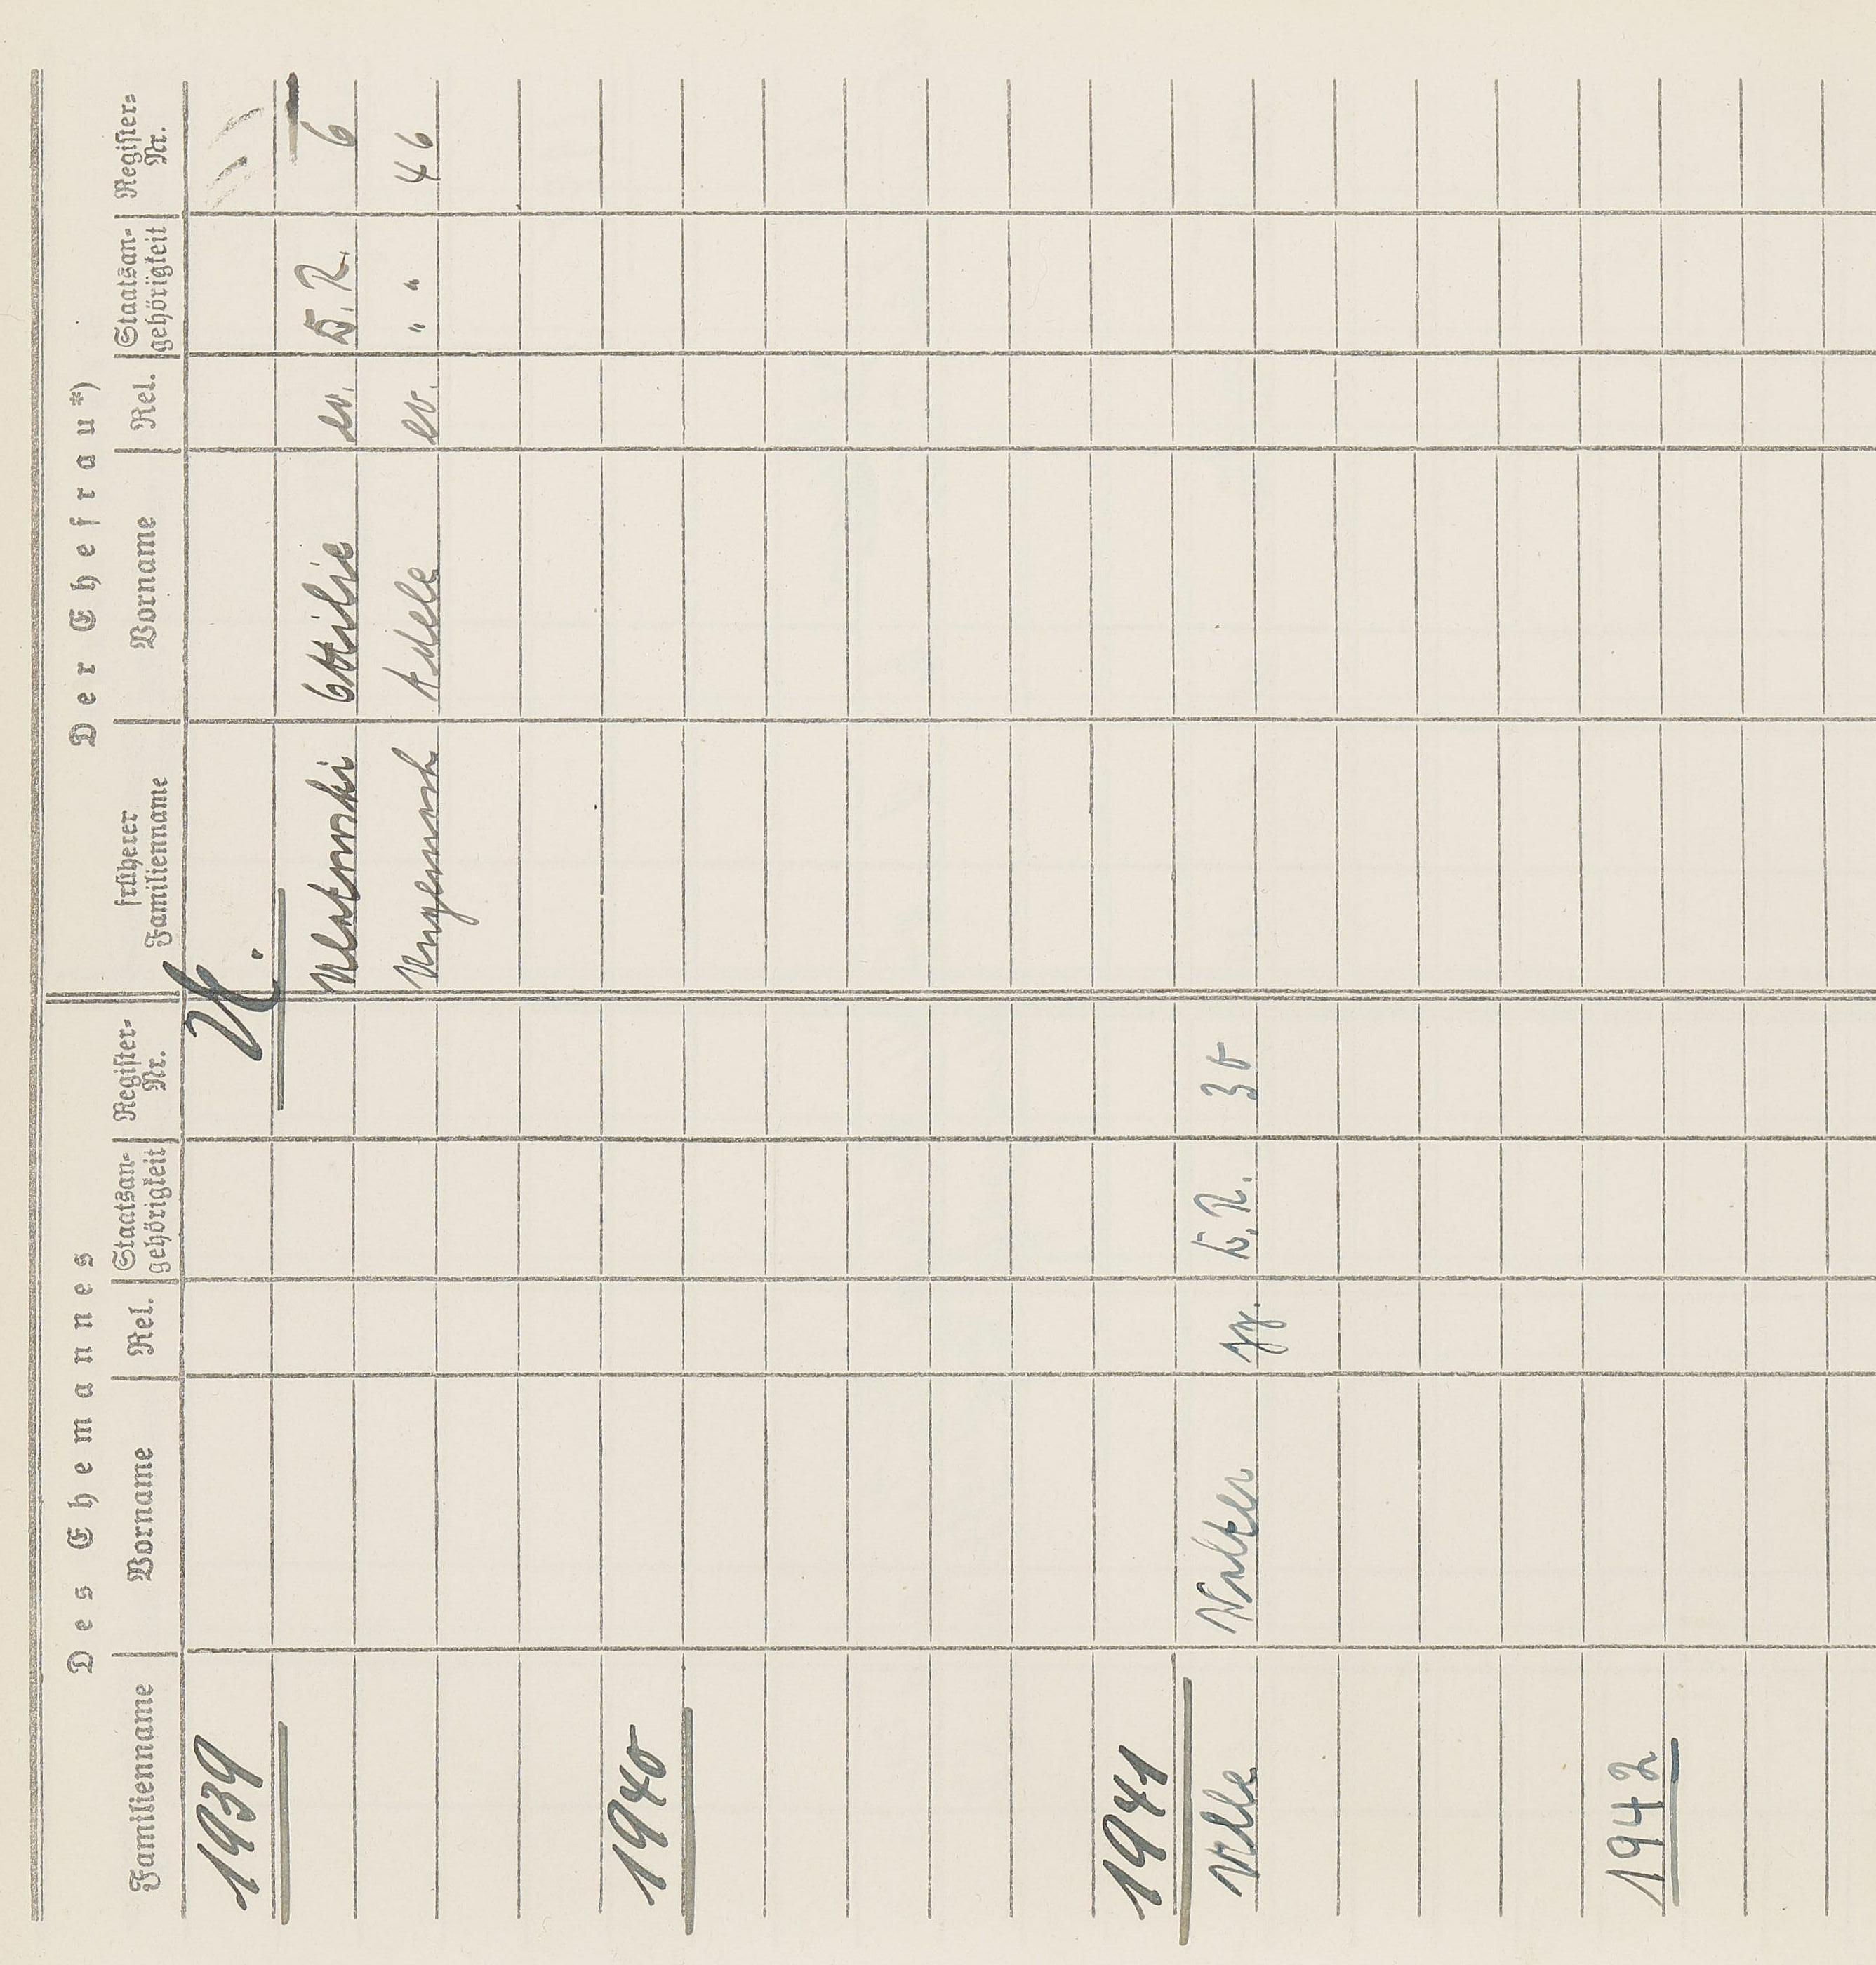 Des Ehemannes Der Ehefrau*)
Familienname Vorname Rel. Staatsan-gehörigkeit Register-Nr. früherer Familienname Vorname Rel. Staatsan-gehörigkeit Register-Nr.
1939 U.
Ottilie ev. D.R. 6
Ungerank Adele ev. " " 46
1940
1941
Ulle Walter D.R. 30
1942